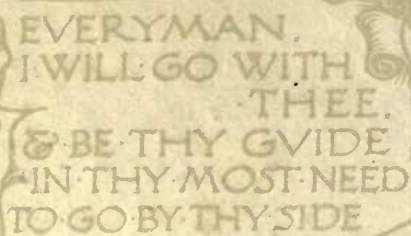 EVERYMAN.
I·WILL·GO WITH
·THEE.
&·BE·THY GVIDE
IN·THY·MOST·NEED
TO·GO·BY·THY·SIDE